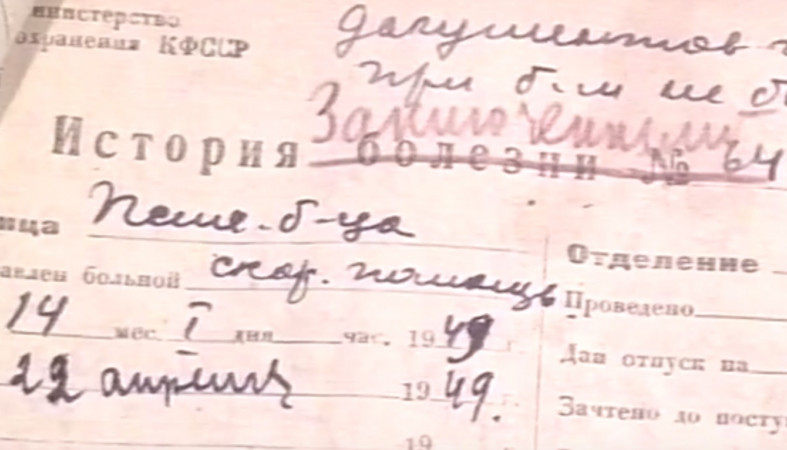 министерство
охранения КФССР
документов
при б-м не
Заключенный
История болезни № 64
ица
б-ца
авлен больной скор. помощь
14 мес. I дня час. 1949 г.
22 апреля 1949.
19
Отделение
Проведено
Дан отпуск на
Зачтено до посту